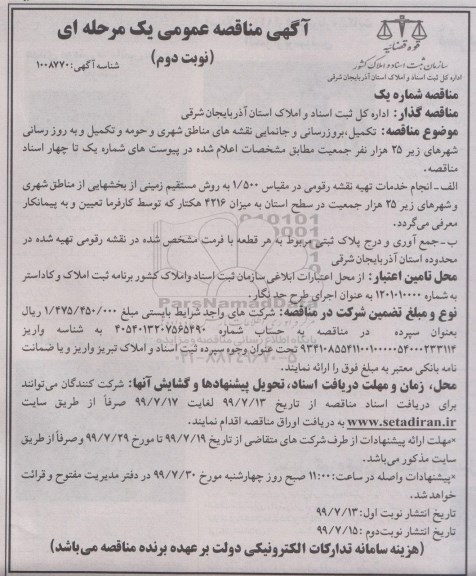 آگهی مناقصه عمومی یک مرحله ای
(نوبت دوم)
شناسه آگهی: ۱۰۰۸۷۷۰
قوه قضائیه
سازمان ثبت اسناد و املاک کشور
اداره کل ثبت اسناد و املاک استان آذربایجان شرقی
مناقصه شماره یک
مناقصه گذار: اداره کل ثبت اسناد و املاک استان آذربایجان شرقی
موضوع مناقصه: تکمیل،بروزرسانی و جانمایی نقشه های مناطق شهری و حومه و تکمیل و به روز رسانی
شهرهای زیر ۲۵ هزار نفر جمعیت مطابق مشخصات اعلام شده در پیوست های شماره یک تا چهار اسناد
مناقصه.
الف - انجام خدمات تهیه نقشه رقومی در مقیاس ۱/۵۰۰ به روش مستقیم زمینی از بخشهایی از مناطق شهری
و شهرهای زیر ۲۵ هزار جمعیت در سطح استان به میزان ۴۲۱۶ هکتار که توسط کارفرما تعیین و به پیمانکار
معرفی می‌گردد.
ب - جمع آوری و درج پلاک ثبتی مربوط به هر قطعه با فرمت مشخص شده در نقشه رقومی تهیه شده در
محدوده استان آذربایجان شرقی
محل تامین اعتبار: از محل اعتبارات ابلاغی سازمان ثبت اسناد واملاک کشور برنامه ثبت املاک و کاداستر
به شماره ۱۲۰۱۰۱۰۰۰۰ به عنوان اجرای طرح حد نگار
نوع و مبلغ تضمین شرکت در مناقصه: شرکت های واجد شرایط بایستی مبلغ ۱/۴۷۵/۴۵۰/۰۰۰ ریال
بعنوان سپرده در مناقصه به حساب شماره ۴۰۵۴۰۱۳۲۰۷۵۶۵۴۹۰ به شناسه واریز
تحت عنوان وجوه سپرده ثبت اسناد و املاک تبریز واریز و یا ضمانت
نامه بانکی معتبر به مبلغ فوق را ارائه نمایند.
محل، زمان و مهلت دریافت اسناد، تحویل پیشنهادها و گشایش آنها: شرکت کنندگان می‌توانند
برای دریافت اسناد مناقصه از تاریخ ۹۹/۷/۱۳ لغایت ۹۹/۷/۱۷ صرفاً از طریق سایت
www.setadiran.ir به دریافت اوراق مناقصه اقدام نمایند.
*مهلت ارائه پیشنهادات از طرف شرکت های متقاضی از تاریخ ۹۹/۷/۱۹ تا مورخ ۹۹/۷/۲۹ و صرفاً از طریق
سایت مذکور می‌باشد.
*پیشنهادات واصله در ساعت: ۱۱:۰۰ صبح روز چهارشنبه مورخ ۹۹/۷/۳۰ در دفتر مدیریت مفتوح و قرائت
خواهد شد.
تاریخ انتشار نوبت اول: ۹۹/۷/۱۳
تاریخ انتشار نوبت دوم: ۹۹/۷/۱۵
(هزینه سامانه تدارکات الکترونیکی دولت بر عهده برنده مناقصه می باشد)